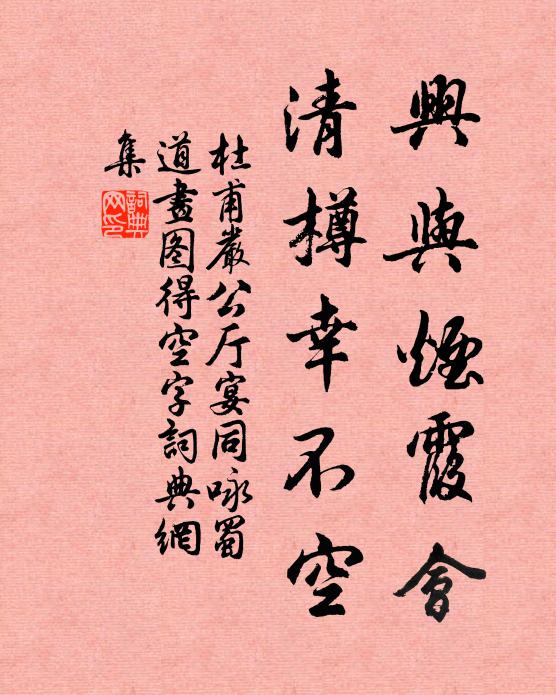 興與煙霞會
清樽幸不空
杜甫嚴公厅宴同咏蜀
道畫图得空字詞典網
集
詞典網印